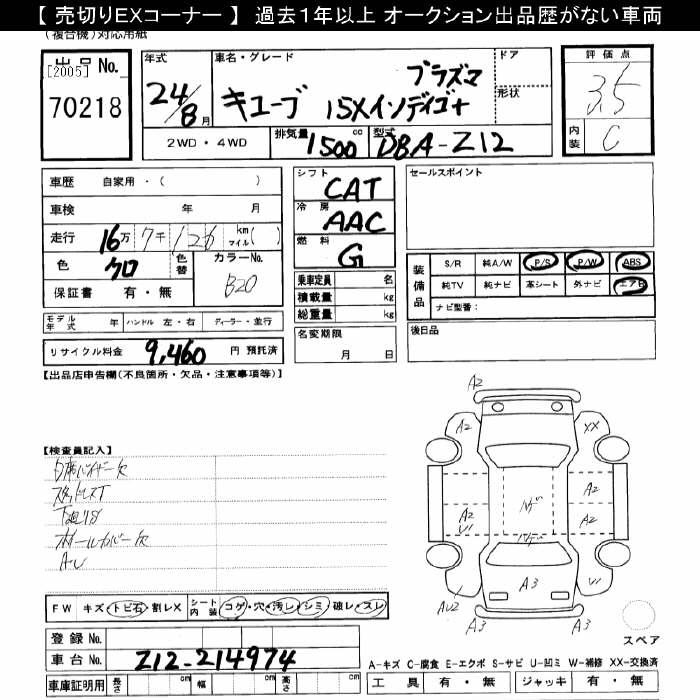 【 売切りEXコーナー 】 過去1年以上 オークション出品歴がない車両
(複合機)対応用紙
出品 No.
[2005]
70218
年式
24/8月
車名・グレード
キューブ 15Xインディゴ+プラズマ
ドア
形状
評価点
3.5
内装
C
2WD・4WD
排気量 1500 cc
型式 DBA-Z12
車歴 自家用・( )
車検 年 月
走行 16万7千126 km マイル( )
色 クロ
色替
カラーNo.
B20
保証書 有・無
シフト CAT
冷房 AAC
燃料 G
乗車定員 名
積載量 kg
総重量 kg
セールスポイント
装備品
S/R 純A/W P/S P/W ABS
純TV 純ナビ 革シート 外ナビ エアB
ナビ型番:
モデル年式 年 ハンドル 左・右 ディーラー・並行
名変期限
月 日
後日品
リサイクル料金 9,460 円 預託済
【出品店申告欄(不良箇所・欠品・注意事項等)】
【検査員記入】
下廻りS
ホイールカバー欠
AU
A2
A2
XX
A2
A2 U1
A2
A3
U1
AU2
A3
A3
スペア
FW キズ・トビ石・割レX
シート内装 コゲ・穴・汚レ・シミ・破レ・スレ
登録 No.
車台 No. Z12-214974
車庫証明用 長さ cm 幅 cm 高さ cm
A-キズ C-腐食 E-エクボ S-サビ U-凹ミ W-補修 XX-交換済
工具 有・無 ジャッキ 有・無